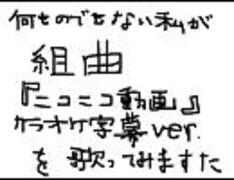 何ものでもない私が
組曲
『ニコニコ動画』
カラオケ字幕ver.
を歌ってみますた